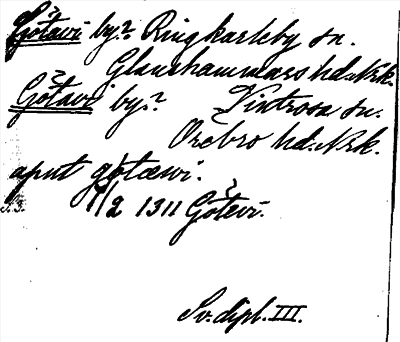 Götavi by? Ringkarleby sn.
Glanshammars hd. Nrk.
Götavi by? Vintrosa sn.
Örebro hd. Nrk.
aput gotæwi.
1/2 1311 Götevi.
Sv. dipl. III.